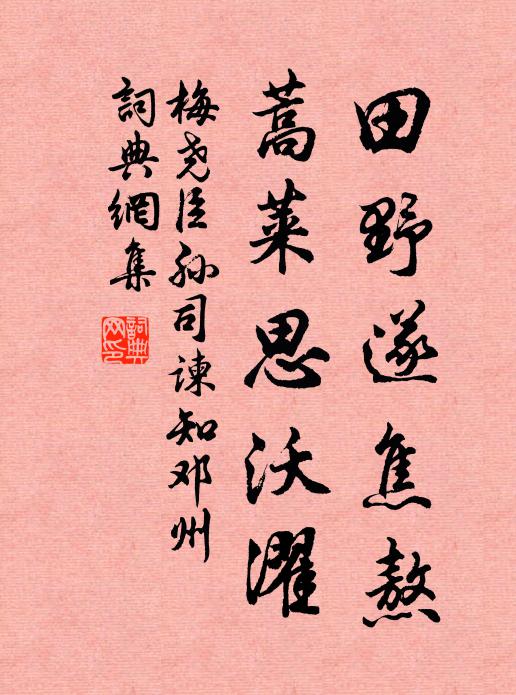 田野遂焦熬
蒿莱思沃濯
梅尧臣孙司谏知邓州
詞典網集
詞典網印